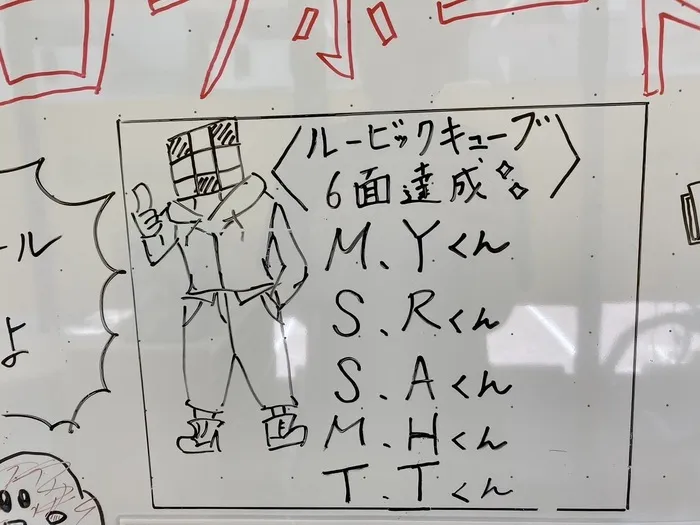 ルービックキューブ
6面達成
M.Yくん
S.Rくん
S.Aくん
M.Hくん
T.Tくん
ール
よ